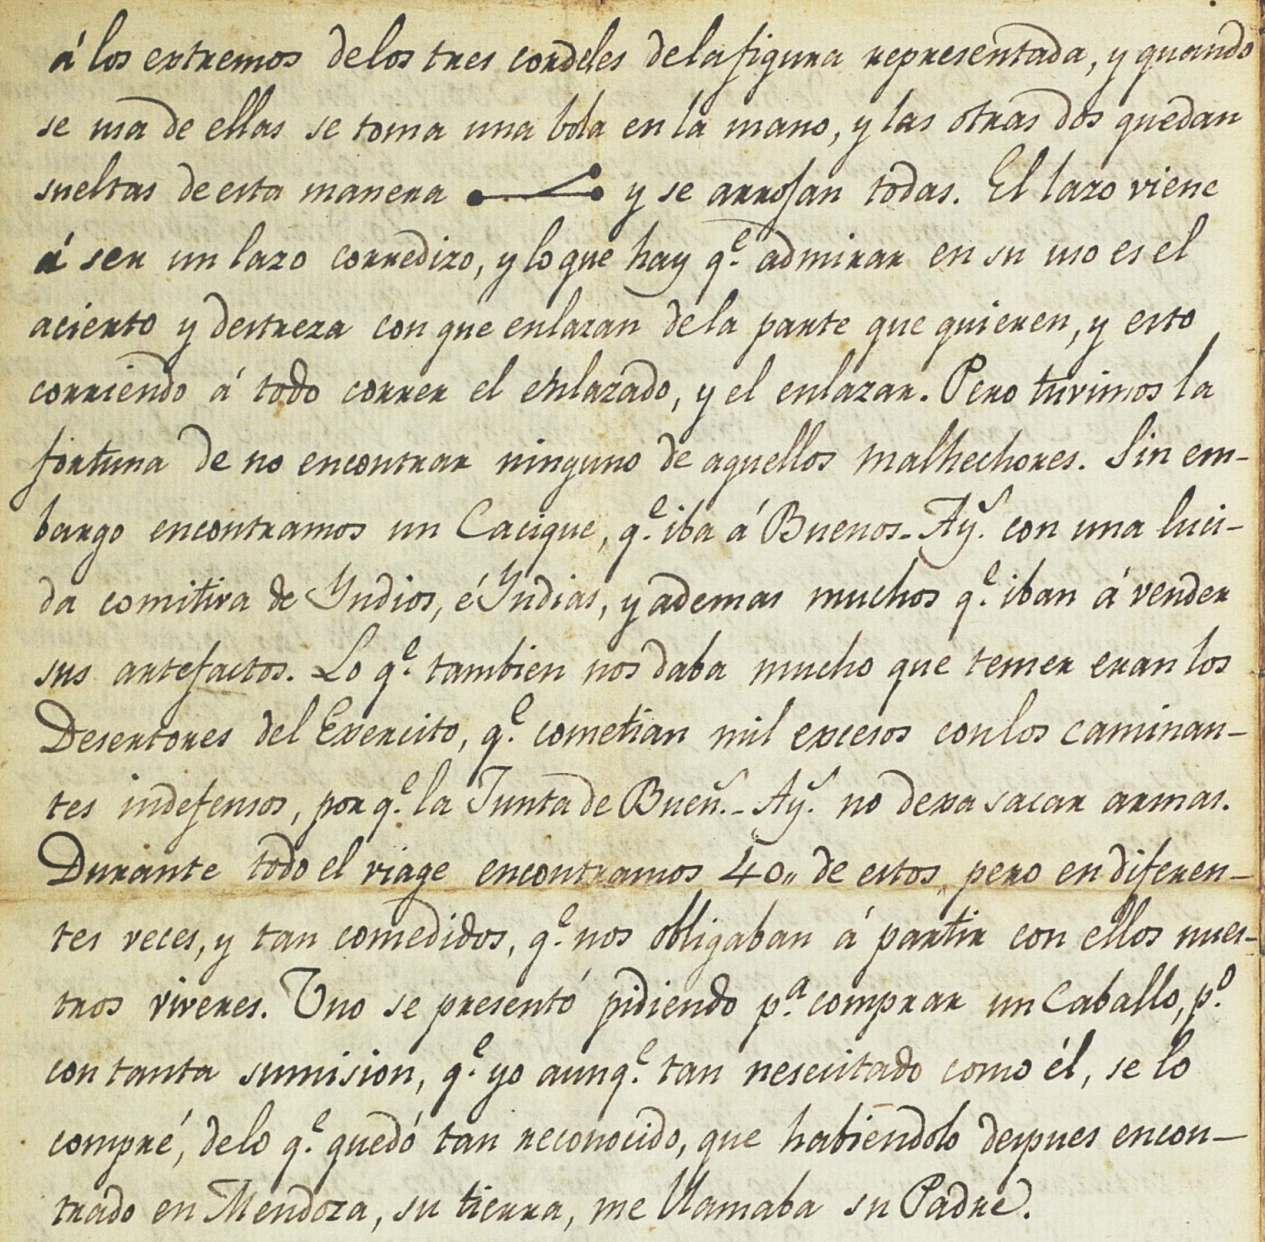 á los extremos delos tres cordeles dela figura representada, y quando
se usa de ellas se toma una bola en la mano, y las otras dos quedan
sueltas de esta manera y se arrojan todas. El lazo viene
á ser un lazo corredizo, y lo que hay q.e admirar en su uso es el
acierto y destreza con que enlazan dela parte que quieren, y esto
corriendo á todo correr el enlazado, y el enlazar. Pero tuvimos la
fortuna de no encontrar ninguno de aquellos malhechores. Sin em-
bargo encontramos un Cacique, q.e iba á Buenos-Ay.s con una luci-
da comitiva de Yndios, é Yndias, y ademas muchos q.e iban á vender
sus artefactos. Lo q.e tambien nos daba mucho que temer eran los
Desertores del Exercito, q.e cometian mil excesos con los caminan-
tes indefensos, por q.e la Junta de Buen.s-Ay.s no dexa sacar armas.
Durante todo el viage encontramos 40,, de estos pero en diferen-
tes veces, y tan comedidos, q.e nos obligaban á partir con ellos nues-
tros viveres. Uno se presentó pidiendo p.a comprar un Caballo, p.o
con tanta sumision, q.e yo aunq.e tan nesecitado como él, se lo
compré, delo q.e quedó tan reconocido, que habiendolo despues encon-
trado en Mendoza, su tierra, me llamaba su Padre.